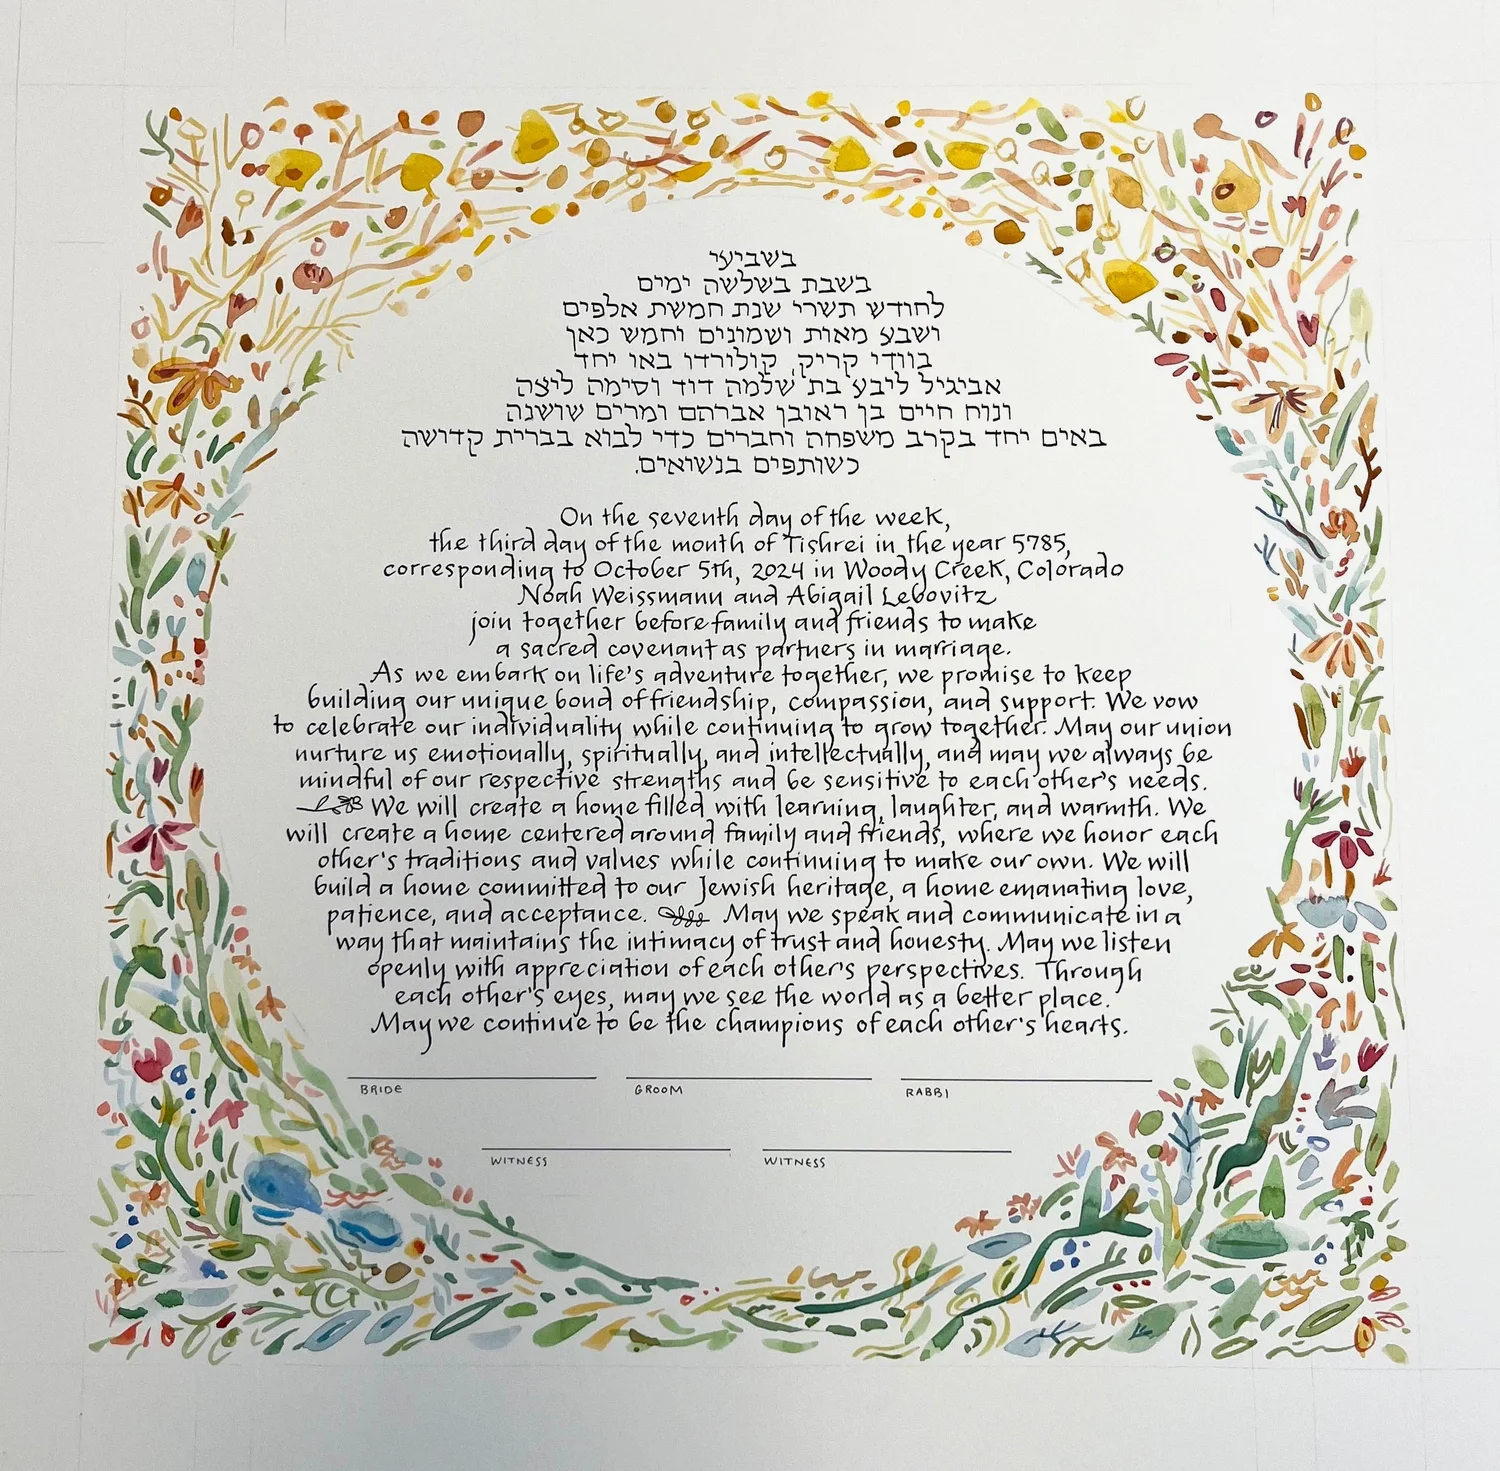 בשביעי
בשבת בשלשה ימים
לחודש תשרי שנת חמשת אלפים
ושבע מאות ושמונים וחמש כאן
בוודי קריק, קולורדו באו יחד
אביגיל ליבע בת שלמה דוד וסימה ליצה
ונוח חיים בן ראובן אברהם ומרים שושנה
באים יחד בקרב משפחה וחברים כדי לבוא בברית קדושה
כשותפים בנשואים.
On the seventh day of the week,
the third day of the month of Tishrei in the year 5785,
corresponding to October 5th, 2024 in Woody Creek, Colorado
Noah Weissmann and Abigail Lebovitz
join together before family and friends to make
a sacred covenant as partners in marriage.
As we embark on life's adventure together, we promise to keep
building our unique bond of friendship, compassion, and support. We vow
to celebrate our individuality while continuing to grow together. May our union
nurture us emotionally, spiritually, and intellectually, and may we always be
mindful of our respective strengths and be sensitive to each other's needs.
We will create a home filled with learning, laughter, and warmth. We
will create a home centered around family and friends, where we honor each
other's traditions and values while continuing to make our own. We will
build a home committed to our Jewish heritage, a home emanating love,
patience, and acceptance. May we speak and communicate in a
way that maintains the intimacy of trust and honesty. May we listen
openly with appreciation of each other's perspectives. Through
each other's eyes, may we see the world as a better place.
May we continue to be the champions of each other's hearts.
BRIDE GROOM RABBI
WITNESS WITNESS